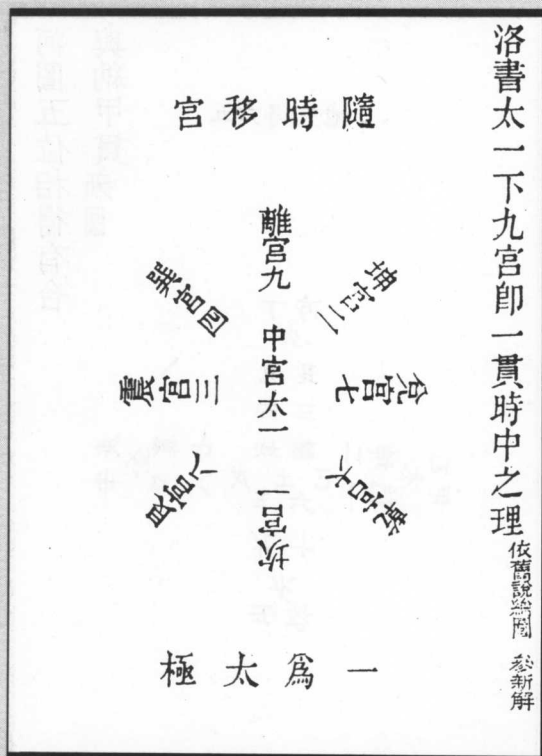 洛書太一下九宮即一貫時中之理
依舊說繪圖 參新解
隨時移宮
離宮九
坤宮二
巽宮四
中宮太一
兌宮七
震宮三
乾宮六
艮宮八
坎宮一
一為太極